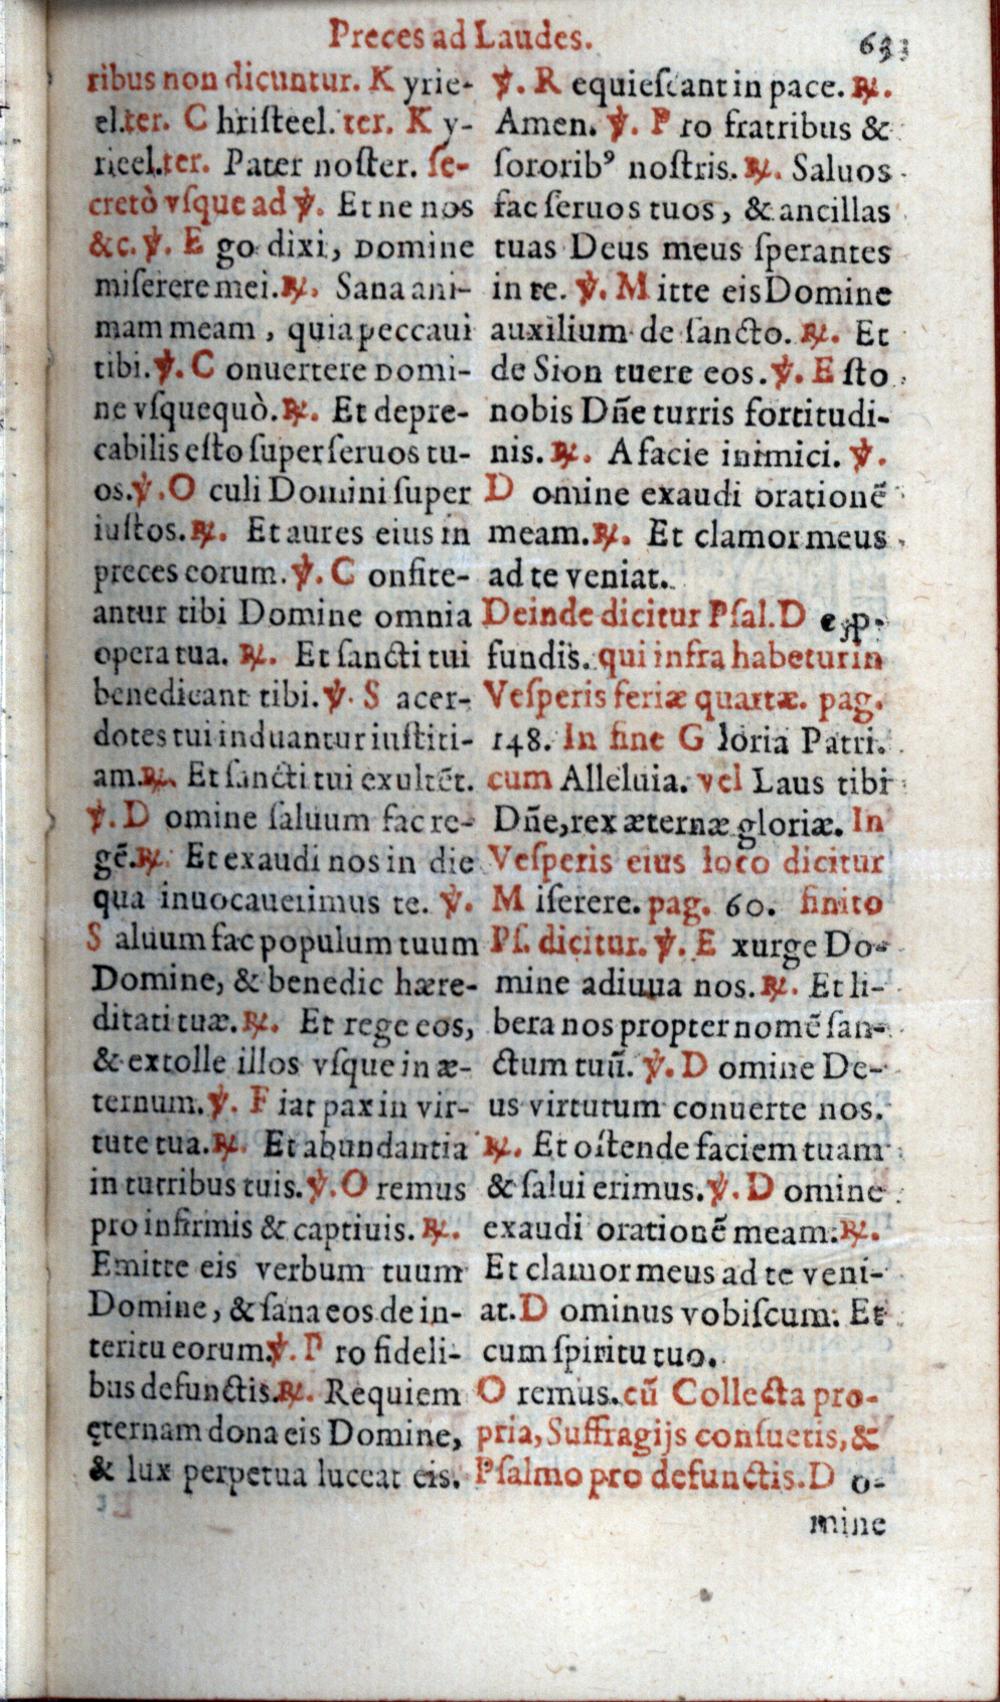 Preces ad Laudes. 63
ribus non dicuntur. K yrie-
el.ter. C hriſteel. ter. K y-
rieel.ter. Pater noſter. ſe-
cretò vſque ad ℣. Et ne nos
&c. ℣. E go dixi, Domine
miſerere mei.℟. Sana ani-
mam meam, quia peccaui
tibi.℣. C onuertere Domi-
ne vſquequò.℟. Et depre-
cabilis eſto ſuper ſeruos tu-
os.℣. O culi Domini ſuper
iuſtos.℟. Et aures eius in
preces eorum.℣. C onfite-
antur tibi Domine omnia
opera tua. ℟. Et ſancti tui
benedicant tibi.℣. S acer-
dotes tui induantur iuſtiti-
am.℟. Et ſancti tui exultēt.
℣. D omine ſaluum fac re-
gē.℟. Et exaudi nos in die
qua inuocauerimus te. ℣.
S aluum fac populum tuum
Domine, & benedic hære-
ditati tuæ.℟. Et rege eos,
& extolle illos vſque in æ-
ternum.℣. F iat pax in vir-
tute tua.℟. Et abundantia
in turribus tuis.℣. O remus
pro infirmis & captiuis. ℟.
Emitte eis verbum tuum
Domine, & ſana eos de in-
teritu eorum.℣. P ro fideli-
bus defunctis.℟. Requiem
ęternam dona eis Domine,
& lux perpetua luceat eis.
℣. R equieſcant in pace. ℟.
Amen. ℣. P ro fratribus &
ſororibꝰ noſtris.℟. Saluos
fac ſeruos tuos, & ancillas
tuas Deus meus ſperantes
in te. ℣. M itte eis Domine
auxilium de ſancto. ℟. Et
de Sion tuere eos.℣. E ſto
nobis Dñe turris fortitudi-
nis. ℟. A facie inimici. ℣.
D omine exaudi orationē
meam.℟. Et clamor meus
ad te veniat.
Deinde dicitur Pſal. D e p.
fundis. qui infra habetur in
Veſperis feriæ quartæ. pag.
148. In fine G loria Patri.
cum Alleluia. vel Laus tibi
Dñe, rex æternæ gloriæ. In
Veſperis eius loco dicitur
M iſerere. pag. 60. finito
Pſ. dicitur. ℣. E xurge Do-
mine adiuua nos. ℟. Et li-
bera nos propter nomē ſan-
ctum tuū. ℣. D omine De-
us virtutum conuerte nos.
℟. Et oſtende faciem tuam
& ſalui erimus.℣. D omine
exaudi orationē meam.℟.
Et clamor meus ad te veni-
at. D ominus vobiſcum. Et
cum ſpiritu tuo.
O remus. cū Collecta pro-
pria, Suffragijs conſuetis, &
Pſalmo pro defunctis. D o-
mine